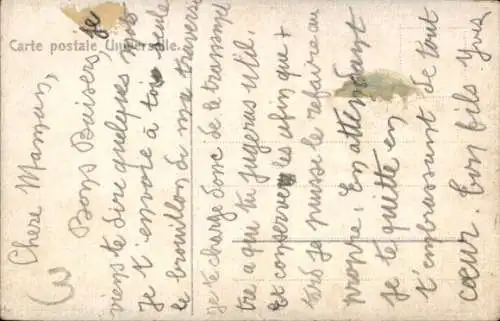 Carte postale Universelle.
Chere Maman,
Bons Baisers, je
viens te dire quelques mots
je t'envoie à toi seule
le brouillon de ma traversée
je te charge donc de le transmet
tre a qui tu jugeras util.
Et conserve les afin que +
tard je puisse le refaire au
propre. En attendant
je te quitte en
t'embrassant de tout
cœur. Ton fils Yves